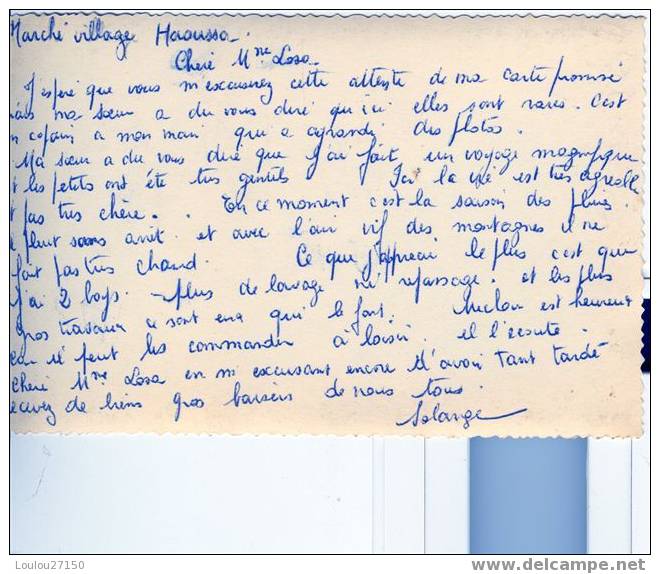 Marché village Haoussa.
Cheré Mme Losa.
J'espère que vous m'excuserez cette attente de ma carte promise
mais ma sœur a du vous dire qu'ici elles sont rares. C'est
un copain a mon mari qui a agrandi des photos.
Ma sœur a du vous dire que j'ai fait un voyage magnifique
et les petits ont été très gentils Ici la vie est très agréable
et pas très chère. En ce moment c'est la saison des pluies.
il pleut sans arrêt et avec l'air vif des montagnes il ne
fait pas très chaud. Ce que j'apprecie le plus c'est que
j'ai 2 boys. plus de lavage ni repassage. et les plus
gros travaux ce sont eux qui le font. est heureux
car il peut les commander à loisir. il l'écoute.
Cheré Mme Losa en m'excusant encore d'avoir tant tardé
recevez de biens gros baisers de nous tous.
Solange
Loulou27150
delcampe.net